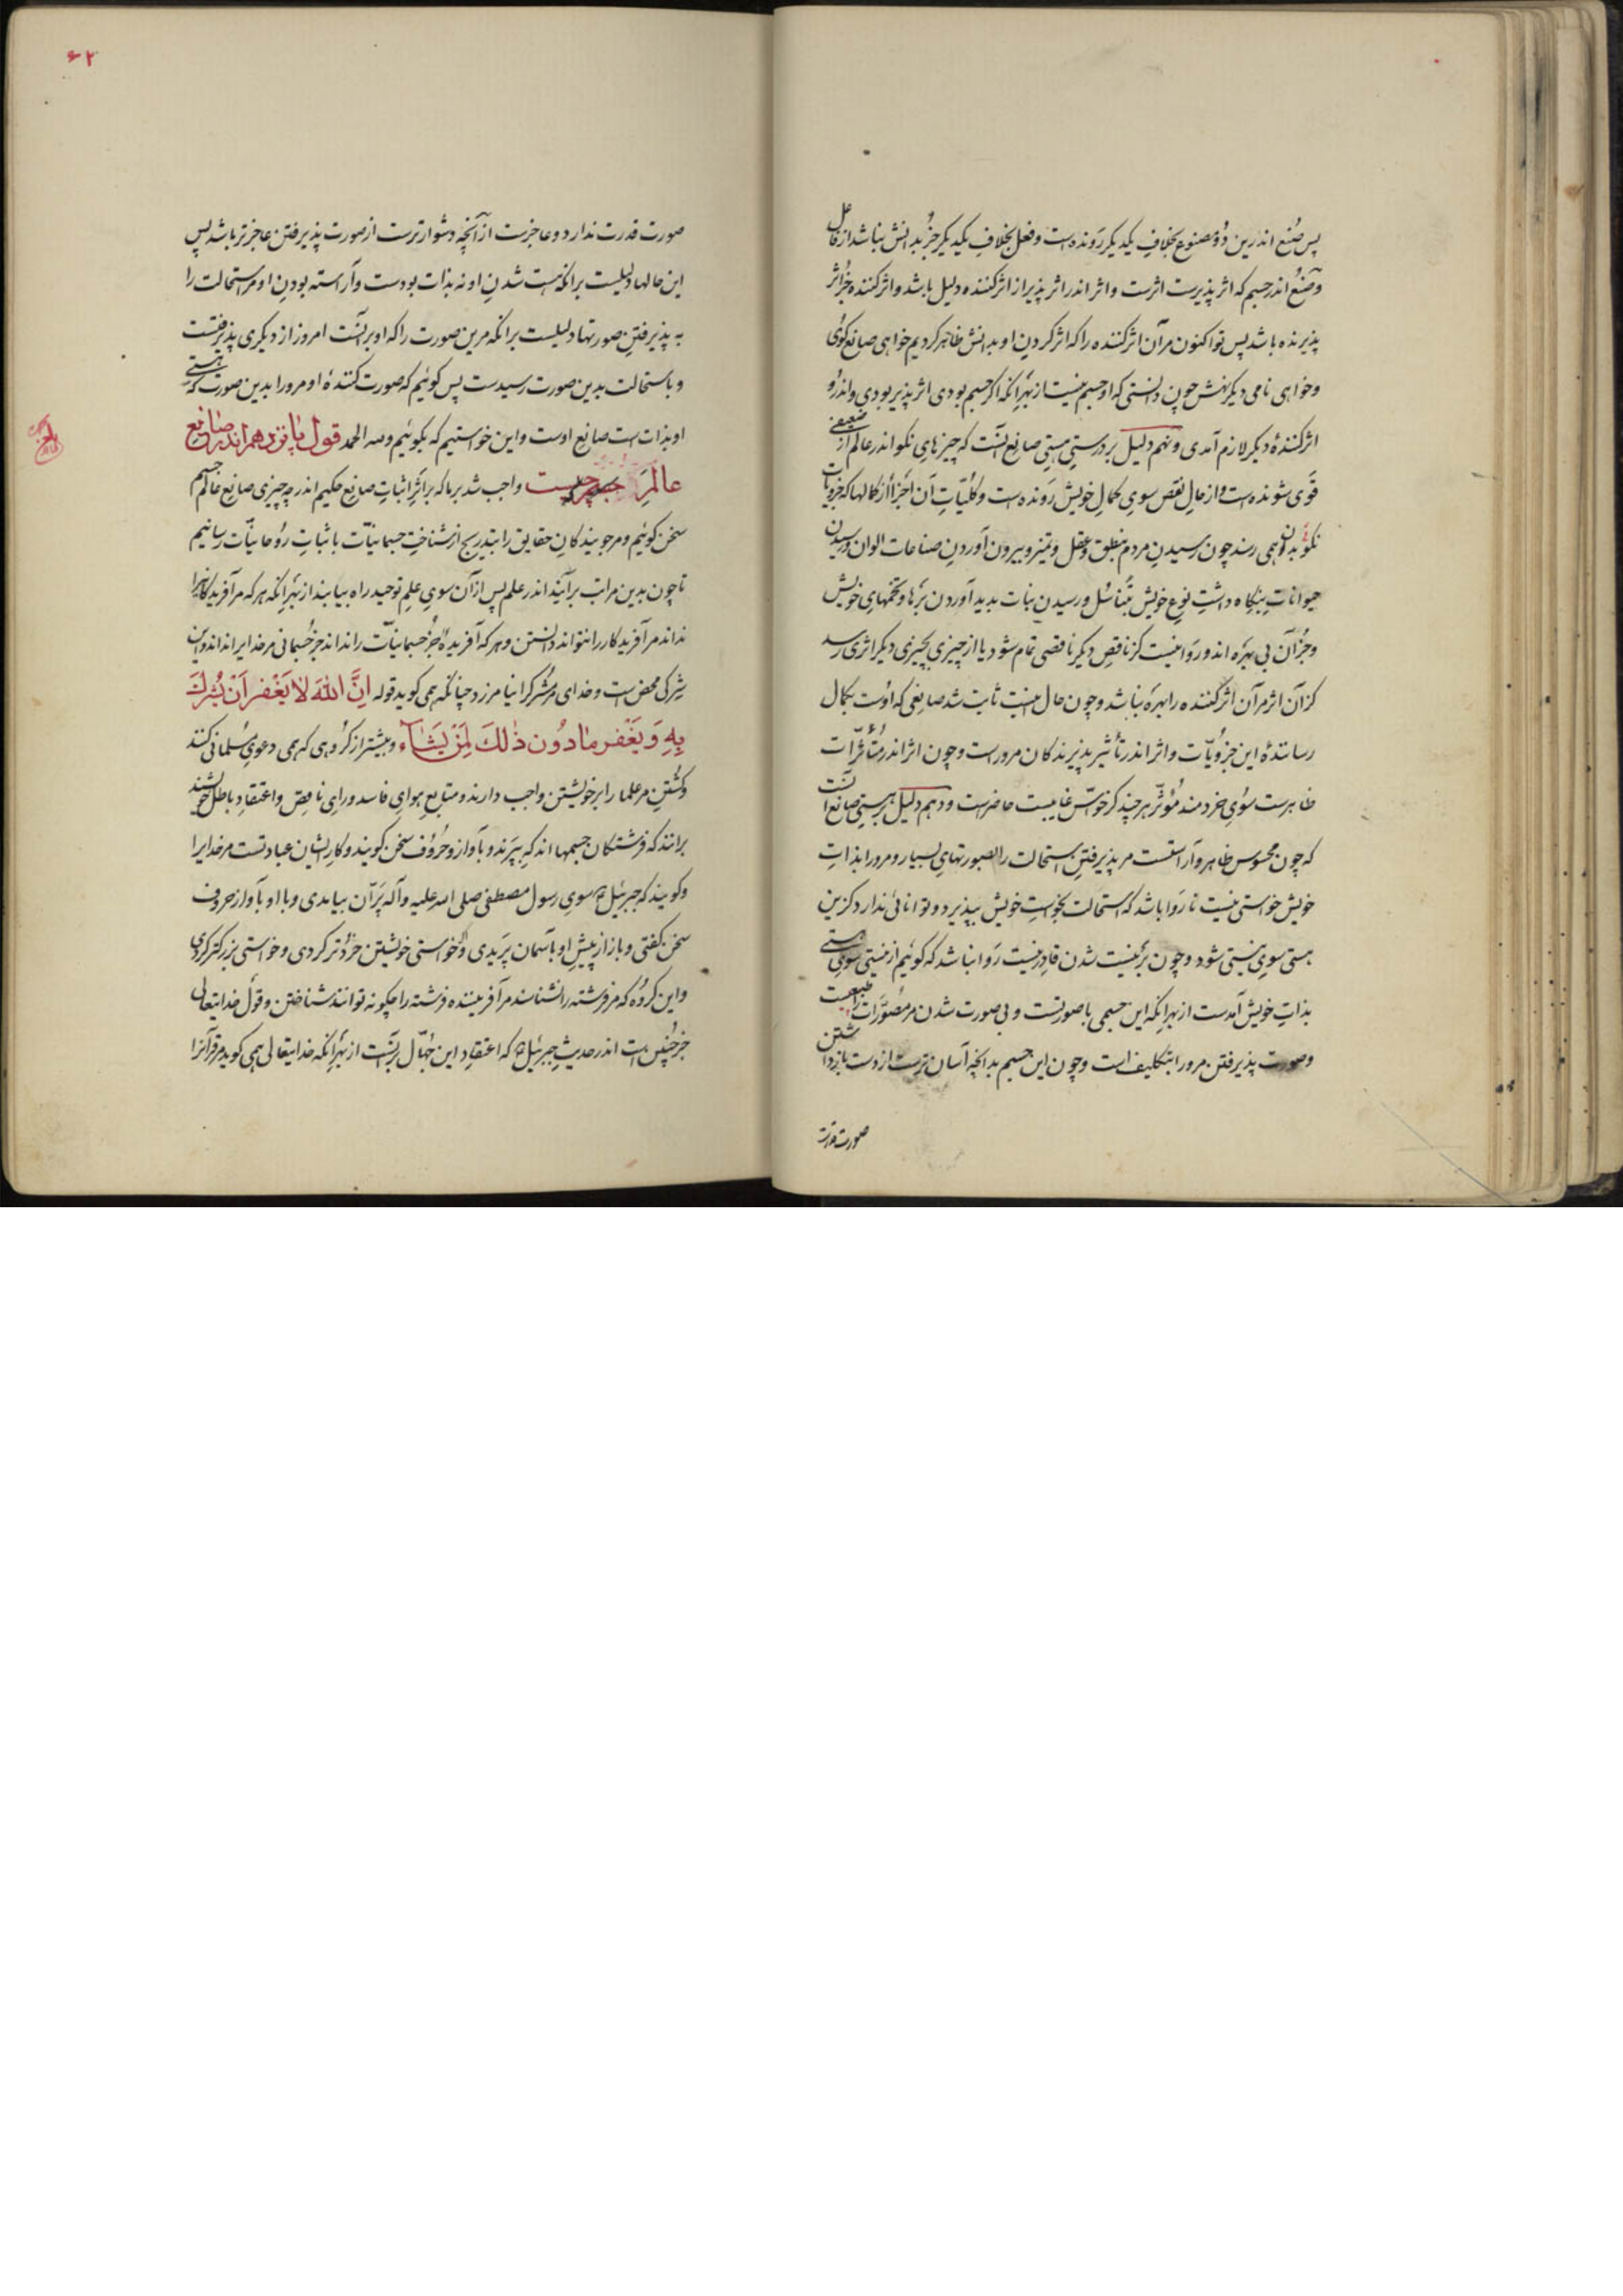 پس صُنع اندرین دو مصنوع بخلافِ یکدیگر رونده است و فعل بخلافِ یکدیگر جز بدانش نباشد از فاعل
و صُنع اندر جسم که اثر پذیرست اثرست و اثر اندر اثر پذیر از اثر کننده دلیل باشد و اثر کننده جز اثر
پذیرنده باشد پس تو اکنون مرآن اثر کننده را که اثر کردن او بدانش ظاهر کردیم خواهی صانع گوی
و خواهی نامی دیگر نهش چون دانستی که او جسم نیست از بهر آنکه اگر جسم بودی اثر پذیر بودی و اندرو
اثر کنندهٔ دیگر لازم آمدی و نهم دلیل بر درستی هستی صانع آنست که چیزهای نکو اندر عالم از ضعیفی
قوی شونده است و از حالِ نقص سوی کمالِ خویش رونده است و کلیّاتِ آن اجزا از کمالها که جزویات
نکو بدان همی رسند چون رسیدنِ مردم بنطق و عقل و تمیز و بیرون آوردنِ صناعات الوان و رسیدن
حیوانات بنگاه داشتِ نوعِ خویش بتناسُل و رسیدنِ نبات بدید آوردن برها و تخمهای خویش
و جز آن بی بهره اند و روا نیست کز ناقصِ دیگر ناقصی تمام شود یا از چیزی بچیزی دیگر اثری رسد
کز آن اثر مرآن اثر کننده را بهره نباشد و چون حال اینست ثابت شد صانعی که اوست بکمال
رسانندهٔ این جزویّات و اثر اندر تأثیر پذیرندگان مروراست و چون اثر اندر متأثّرات
ظاهرست سوی خردمند مؤثّر هر چند کز حواسّ غایبست حاضرست و دهم دلیل بر هستی صانع آنست
که چون محسوس ظاهر و آراستست مر پذیرفتنِ استحالت را بصورتهای بسیار و مرورا بذاتِ
خویش خواستی نیست تا روا باشد که استحالت بخواستِ خویش بپذیرد و توانائی ندارد کزین
هستی سوی نیستی شود و چون بر نیست شدن قادر نیست روا نباشد که گوئیم از نیستی سوی هستی
بذاتِ خویش آمدست از بهر آنکه این جسمی با صورتست و بی صورت شدن مر مصوّرات را طبیعیست
و صورت پذیرفتن مرورا بتکلیف است و چون این جسیم بدانچه آسان ترست از دست بازداشتن
صورت قدرت
۶۲
صورت قدرت ندارد و عاجزست از آنچه دشوارترست از صورت پذیرفتن عاجزتر باشد پس
این حالها دلیلست بر آنکه هست شدنِ او نه بذات بودست و آراسته بودنِ او مر استحالت را
به پذیرفتنِ صورتها دلیلست بر آنکه مرین صورت را که او بر آنست امروز از دیگری پذیرفتست
و باستحالت بدین صورت رسیدست پس گوئیم که صورت کنندهٔ او مرورا بدین صورت که هستی
او بذات است صانع اوست و این خواستیم که بگوئیم ولله الحمد قول پانزدهم اندر صانع
عالم چیست واجب شد بر ما که بر اثرِ اثباتِ صانع حکیم اندر چه چیزی صانع عالم جسم
سخن گوئیم و مر جویندگانِ حقایق را بتدریج از شناختِ جسمانیّات باثباتِ روحانیّات رسانیم
تا چون بدین مراتب برآیند اندر علم پس از آن سوی علمِ توحید راه بیابند از بهر آنکه هر که مر آفریدگانرا
نداند مر آفریدگار را نتواند دانستن و هر که آفریده جز جسمانیّات را نداند جز جسمانی مر خدایرا نداند و این
شِرکی محض است و خدای مر مُشرک را نیامرزد چنانکه همی گوید قوله اِنَّ اللهَ لا یَغْفِرُ اَنْ یُشْرَکَ
بِهِ وَ یَغْفِرُ مَا دُونَ ذٰلِکَ لِمَنْ یَشَآءُ و بیشتر از گروهی که همی دعوی مسلمانی کنند
و کُشتنِ مر علما را بر خویشتن واجب دارند و متابعِ هوای فاسد و رایِ ناقص و اعتقادِ باطلِ خویشند
بر آنند که فرشتگان جسمها اند که بپرند و بآواز و حروف سخن گویند و کارِ ایشان عبادتست مر خدایرا
و گویند که جبرئیل سوی رسول مصطفی صلی الله علیه و آله پرّان بیامدی و با او بآواز حروف
سخن گفتی و باز از پیشِ او بآسمان پریدی و گر خواستی خویشتن خردتر کردی و خواستی بزرگتر کردی
و این گروه که مر فرشته را نشناسند مر آفریننده فرشته را چگونه توانند شناختن و قول خدایتعالی
جز چنین است اندر حدیثِ جبرئیل که اعتقادِ این جُهّال بر آنست از بهر آنکه خدایتعالی همی گوید مر قرآنرا